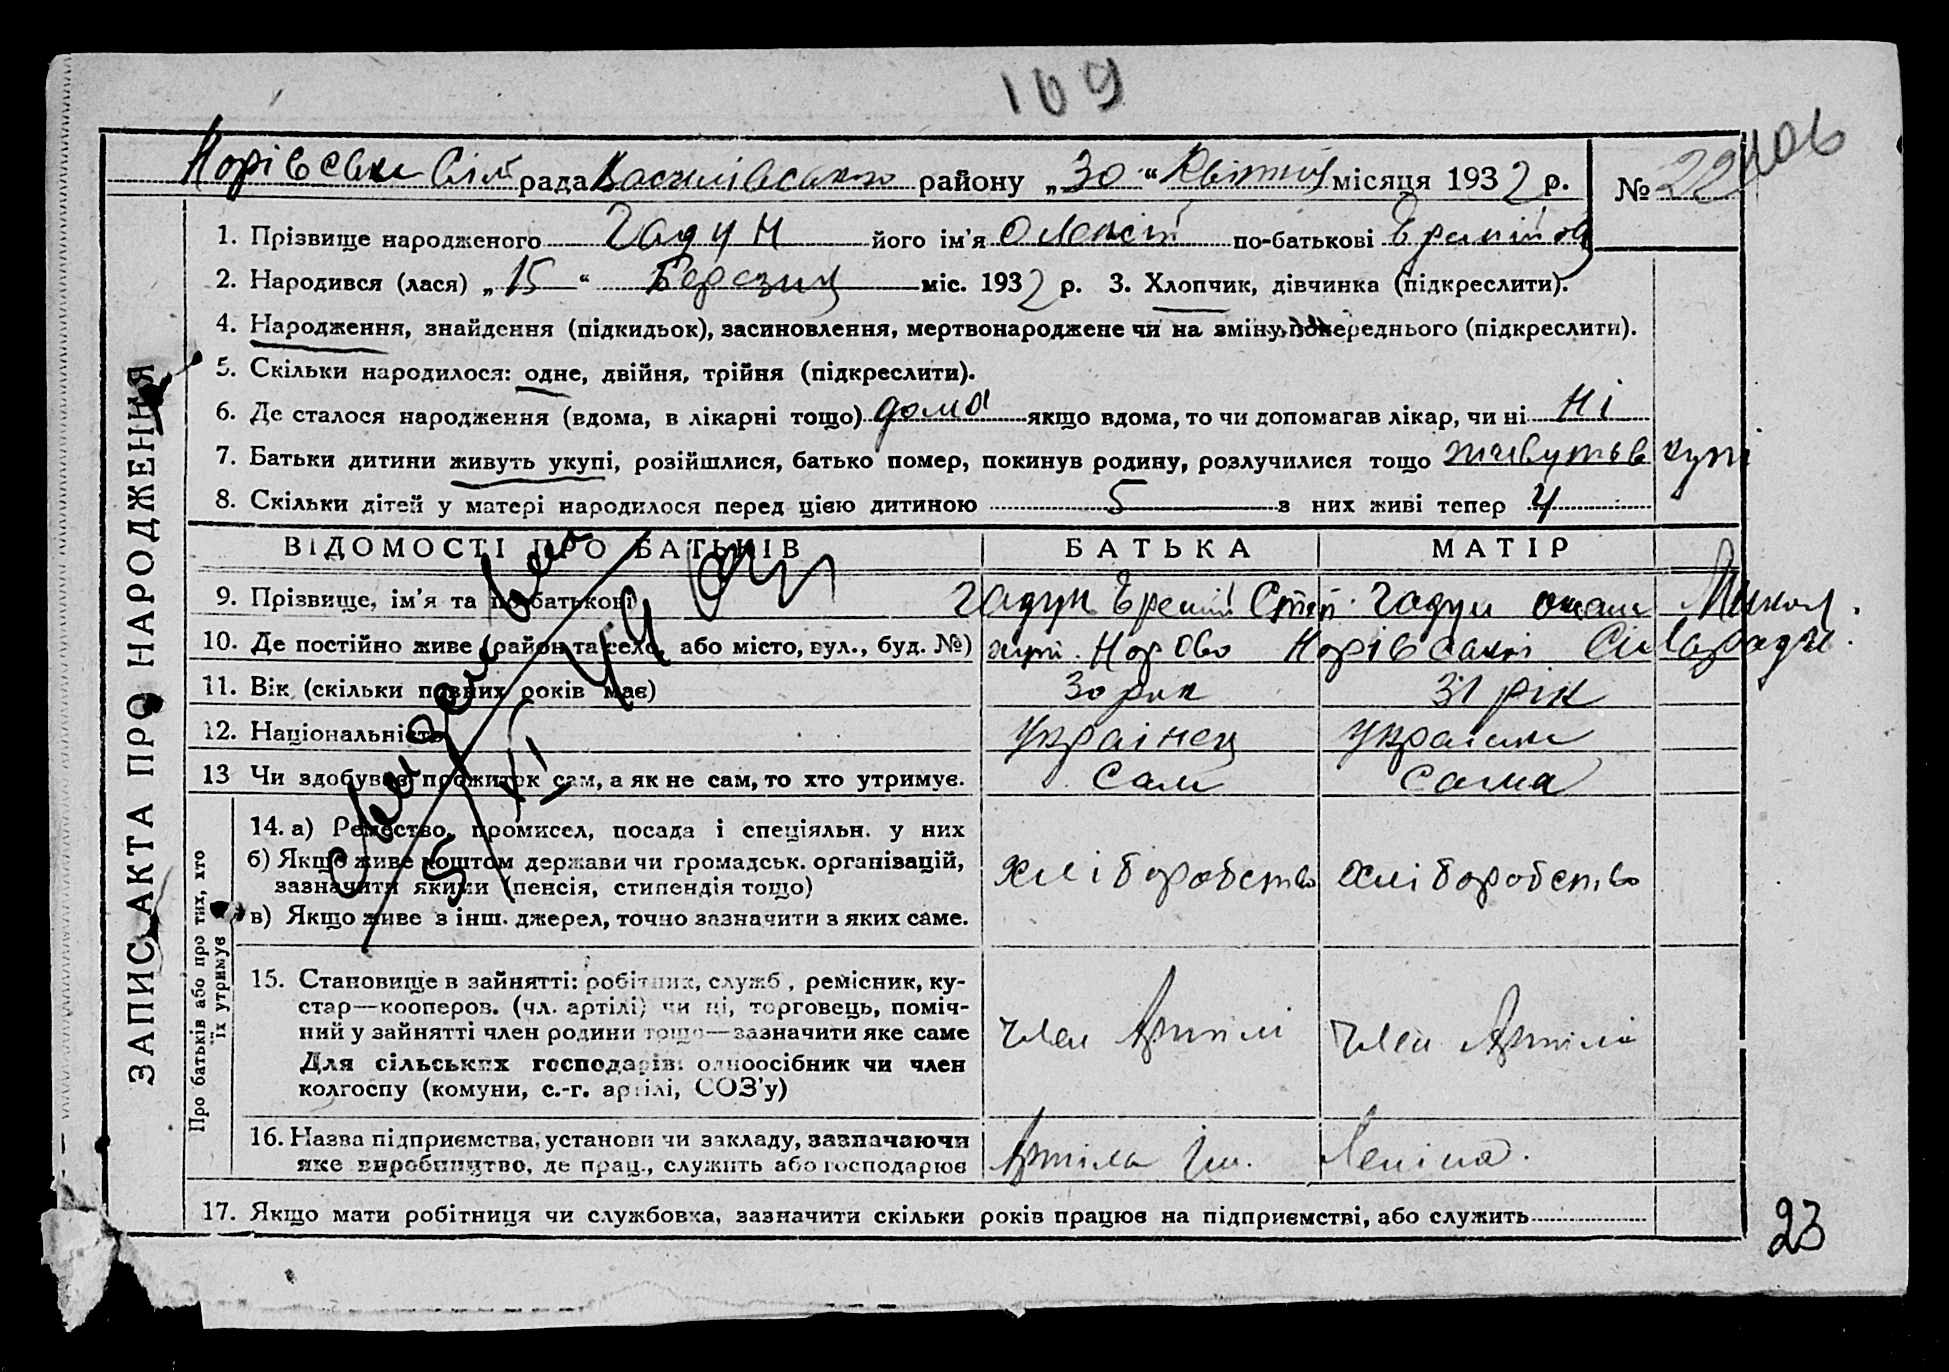 109
Норівська Сіль рада Василівського району „30“ Квітня місяця 1932 р. № 22
106
1. Прізвище народженого Гадун його ім'я Олексій по-батькові Єремійов
2. Народився (лася) „15“ Березня міс. 1932 р. 3. Хлопчик, дівчинка (підкреслити).
4. Народження, знайдення (підкидьок), засиновлення, мертвонароджене чи на зміну попереднього (підкреслити).
5. Скільки народилося: одне, двійня, трійня (підкреслити).
6. Де сталося народження (вдома, в лікарні тощо) дома якщо вдома, то чи допомагав лікар, чи ні ні
7. Батьки дитини живуть укупі, розійшлися, батько помер, покинув родину, розлучилися тощо живуть в купі
8. Скільки дітей у матері народилося перед цією дитиною 5 з них живі тепер 4
ВІДОМОСТІ ПРО БАТЬКІВ БАТЬКА МАТІР
9. Прізвище, ім'я та по-батькові Гадун Єремій Степ. Гадун Микол.
10. Де постійно живе (район та село, або місто, вул., буд. №) хут. Норово Норівської Сільради.
11. Вік (скільки повних років має) 30 рік 31 рік
12. Національність Українец Українка
13 Чи здобуває прожиток сам, а як не сам, то хто утримує. Сам Сама
14. а) Ремество, промисел, посада і спеціяльн. у них
б) Якщо живе коштом держави чи громадськ. організацій,
зазначити якими (пенсія, стипендія тощо) хліборобство хліборобство
в) Якщо живе з інш. джерел, точно зазначити з яких саме.
15. Становище в зайнятті: робітник, служб, ремісник, ку-
стар—кооперов. (чл. артілі) чи ні, торговець, поміч-
ний у зайнятті член родини тощо—зазначити яке саме член Артілі член Артілі
Для сільських господарів: одноосібник чи член
колгоспу (комуни, с.-г. артілі, СОЗ'у)
16. Назва підприємства, установи чи закладу, зазначаючи
яке виробництво, де прац., служить або господарює Артіль Ім. Леніна.
17. Якщо мати робітниця чи службовка, зазначити скільки років працює на підприємстві, або служить
23
ЗАПИС АКТА ПРО НАРОДЖЕННЯ
Про батьків або про тих, хто
їх утримує
5 VI 49